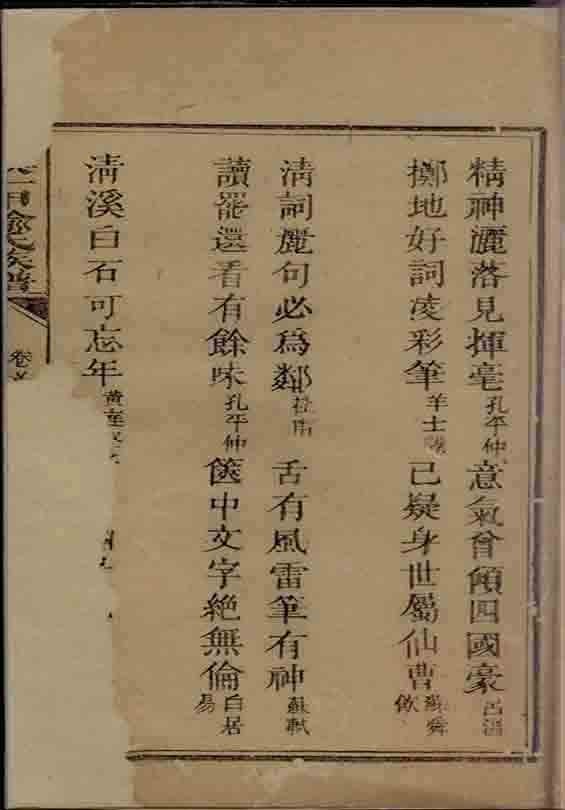 精神灑落見揮毫孔平仲意氣曾傾四國豪呂溫
擲地好詞凌彩筆羊士諤已疑身世屬仙曹蘇舜欽
清詞麗句必為鄰杜甫舌有風雷筆有神蘇軾
讀罷還看有餘味孔平仲篋中文字絕無倫白居易
清溪白石可忘年黃
氏族譜
卷